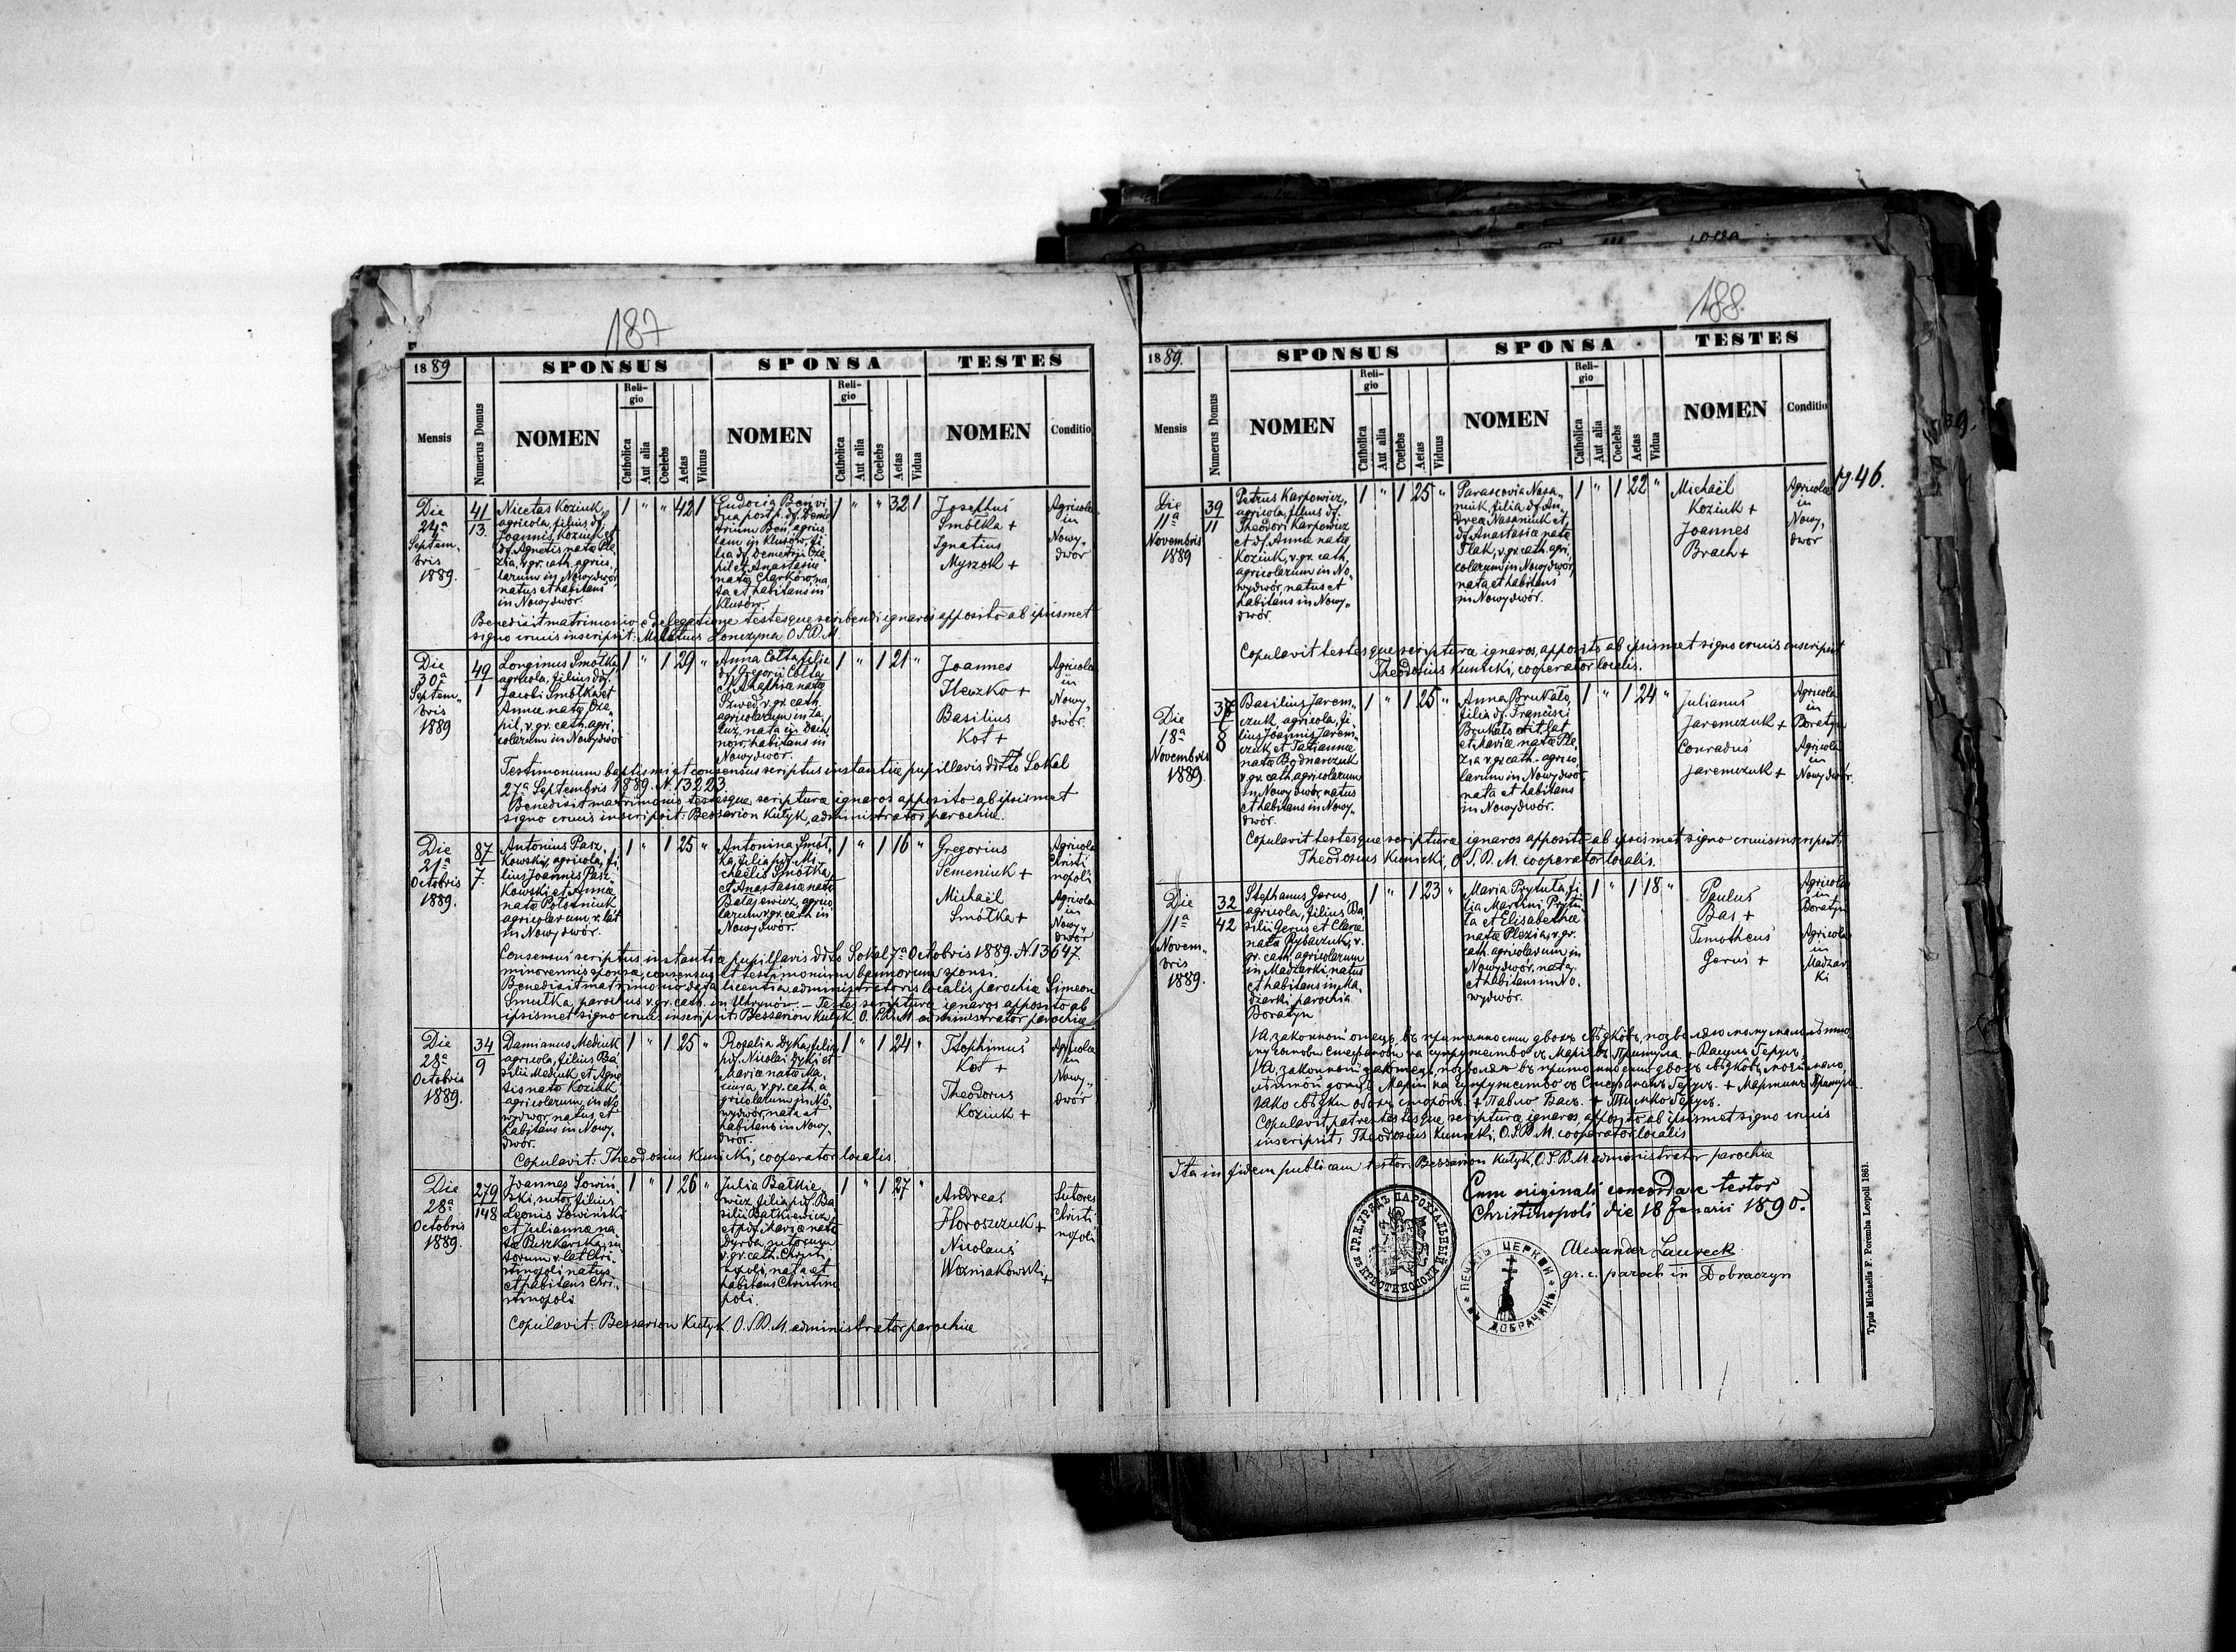 187
1889
SPONSUS
SPONSA
TESTES
Mensis
Numerus Domus
NOMEN
Religio
Catholica
Aut alia
Coelebs
Aetas
Viduus
NOMEN
Religio
Catholica
Aut alia
Coelebs
Aetas
Vidua
NOMEN
Conditio
Die
24ª
Septem„
bris
1889.
41
13.
Nicetas Koziuk,
agricola, filius df.
Joannis Koziuk et
df. Agnetis natæ Ple„
zia, r. gr. cath. agrico„
larum in Nowydwór
natus et habitans
in Nowydwór.
1 „ „ 42 1
Eudocia Boń, vi„
dua post p. df. Deme„
trium Boń, agrico„
lam in Klusów, fi„
lia df. Demetrii Cza„
pil et Anastasiæ
natæ Charków, na„
ta et habitans in
Klusów.
1 „ „ 32 1
Josephus
Smółka +
Ignatius
Myszok +
Agricolæ
in
Nowy„
dwór
Benedixit matrimonio e delegatione testesque scribendi ignaros apposito ab ipsismet
signo crucis inscripsit: Lonczyna O.S.B.M.
Die
30ª
Septem„
bris
1889
49
1
Longinus Smółka,
agricola, filius df.
Jacobi Smółka et
Annæ natæ Cza„
pil, r. gr. cath. agri„
colarum in Nowydwór
1 „ 1 29 „
Anna Cołta filia
df. Gregorii Cołta
et Agathiæ natæ
Szwed, r. gr. cath.
agricolarum in Za„
łuż, nata in
habitans in
Nowydwór.
1 „ 1 21 „
Joannes
Ilczko +
Basilius
Kot +
Agricolæ
in
Nowy„
dwór.
Testimonium baptismi et consensus scriptus instantiæ pupillavis ddto Sokal
27ª Septembris 1889. N. 13223.
Benedixit matrimonio testesque scripturæ ignaros apposito ab ipsismet
signo crucis inscripsit: Bessarion Kułyk, administrator parochiæ.
Die
21ª
Octobris
1889.
87
7.
Antonius Pasz„
kowski, agricola, fi„
lius Joannis Pasz„
kowski et Annæ
natæ Potoczniuk
agricolarum r. lat
in Nowydwór.
1 „ 1 25 „
Antonina Smół„
ka, filia pdf. Mi„
chaëlis Smółka
et Anastasiæ natæ
Bałajewicz, agrico„
larum r. gr. cath. in
Nowydwór.
1 „ 1 16 „
Gregorius
Semeniuk +
Michaël
Smółka +
Agricola
Christi
nopoli
Agricola
in
Nowy„
dwór
Consensus scriptus instantiæ pupillavis ddto Sokal 7ª Octobris 1889. N. 13647.
minorennis sponsæ, consensus et testimonium bannorum sponsi.
Benedixit matrimonio data licentia administratoris localis parochiæ Simeon
Smulka, parochus r. gr. cath. in Uhrynów. — Testes scripturæ ignaros apposito ab
ipsismet signo crucis inscripsit: Bessarion Kułyk O.S.B.M. administrator parochiæ
Die
28ª
Octobris
1889.
34
9
Damianus Mediuk
agricola, filius Ba„
silii Mediuk et Agne„
tis nata Koziuk
agricolarum, in No„
wydwór, natus et
habitans in Nowy„
dwór.
1 „ 1 25 „
Rosalia Dyka, filia
pdf. Nicolai Dyki et
Mariæ natæ Ma„
ciura, r. gr. cath. a„
gricolarum, in No„
wydwór, nata et
habitans in Nowy„
dwór.
1 „ 1 24 „
Trophimus
Kot +
Theodorus
Koziuk +
Agricolæ
in
Nowy„
dwór
Copulavit: Theodosius Kunicki, cooperator localis.
Die
28ª
Octobris
1889.
279
148
Joannes Sowiń„
ski, sutor, filius
Leonis Sowiński
et Juliannæ na„
tæ Piszkorska, su„
torum r. lat Chri„
stinopoli natus
et habitans Chri„
stinopoli
1 „ 1 26 „
Julia Bałkie„
wicz, filia pdf. Ba„
silii Bałkiewicz
et pdf. Mariæ natæ
Dyrda, sutorum
r. gr. cath. Christi„
nopoli, nata et
habitans Christino
poli.
1 „ 1 27 „
Andreas
Horoszczuk +
Nicolaus
Wozniakowski +
Sutores
Christi
nopoli
Copulavit: Bessarion Kułyk O.S.B.M. administrator parochiæ
188
1889.
SPONSUS
SPONSA
TESTES
Mensis
Numerus Domus
NOMEN
Religio
Catholica
Aut alia
Coelebs
Aetas
Viduus
NOMEN
Religio
Catholica
Aut alia
Coelebs
Aetas
Vidua
NOMEN
Conditio
46.
Die
11ª
Novembris
1889
39
11
Petrus Karpowicz,
agricola, filius df.
Theodori Karpowicz
et df. Annæ natæ
Koziuk, r. gr. cath.
agricolarum in No„
wydwór, natus et
habitans in Nowy„
dwór.
1 „ 1 25 „
Parascevia Nasa„
niuk, filia df. An„
dreæ Nasaniuk et
df. Anastasiæ natæ
Flak, r. gr. cath. agri„
colarum in Nowydwór,
nata et habitans
in Nowydwór.
1 „ 1 22 „
Michaël
Koziuk +
Joannes
Brach +
Agricolæ
in
Nowy„
dwór
Copulavit testesque scripturæ ignaros, apposito ab ipsismet signo crucis inscripsit
Theodosius Kunicki, cooperator localis.
Die
18ª
Novembris
1889.
8
Basilius Jarem„
czuk, agricola, fi„
lius Joannis Jarem„
czuk et Tatiannæ
natæ Bodnarczuk
r. gr. cath. agricolarum
in Nowydwór, natus
et habitans in Nowy„
dwór.
1 „ 1 25 „
Anna Brukało,
filia df. Francisci
Brukało rit. lat
et Mariæ natæ Ple„
zia r. gr. cath. agrico„
larum in Nowydwór
nata et habitans
in Nowydwór.
1 „ 1 24 „
Julianus
Jaremczuk +
Conradus
Jaremczuk +
Agricola
in
Boratyn
Agricola
in
Nowydwór.
Copulavit testesque scripturæ ignaros apposito ab ipsismet signo crucis inscripsit,
Theodosius Kunicki, O.S.B.M. cooperator localis.
Die
11ª
Novem„
bris
1889.
32
42
Stephanus Gerus
agricola, filius Ba„
silii Gerus et Claræ
natæ Rybaczuk, r.
gr. cath. agricolarum
in Madżarki natus
et habitans in Ma„
dżarki parochia
Boratyn
1 „ 1 23 „
Maria Prytuła, fi„
lia Martini Prytu„
ła et Elisabethæ
natæ Plezia, r. gr.
cath. agricolarum in
Nowydwór, nata
et habitans in No„
wydwór.
1 „ 1 18 „
Paulus
Bas +
Timotheus
Gerus +
Agricola
in
Boratyn
Agricola
in
Madżar„
ki
Copulavit, patres testesque, scripturæ ignaros, apposito ab ipsismet signo crucis
inscripsit, Theodosius Kunicki, O.S.B.M. cooperator localis
Ita in fidem publicam testor. Bessarion Kułyk, O.S.B.M. administrator parochiæ
Cum originali concordare testor
Christinopoli die 18 Januarii 1890.
Alexander Laureck
gr. c. paroch in Dobraczyn
ПЕЧАТЬ ЦЕРКВИ
ДОБРАЧИНЪ
Typis Michaelis F. Poremba Leopoli 1861.